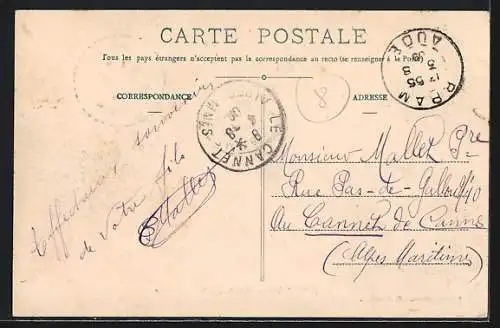 CARTE POSTALE
Tous les pays étrangers n'acceptent pas la correspondance au recto (se renseigner à la Poste)
CORRESPONDANCE
ADRESSE
8
LE CANNET
AUDE
Affectueux souvenir
de votre fils
Mallet
Monsieur Mallet Pre
Rue Pas-de-
Au Cannet de Cannes
(Alpes Maritimes)